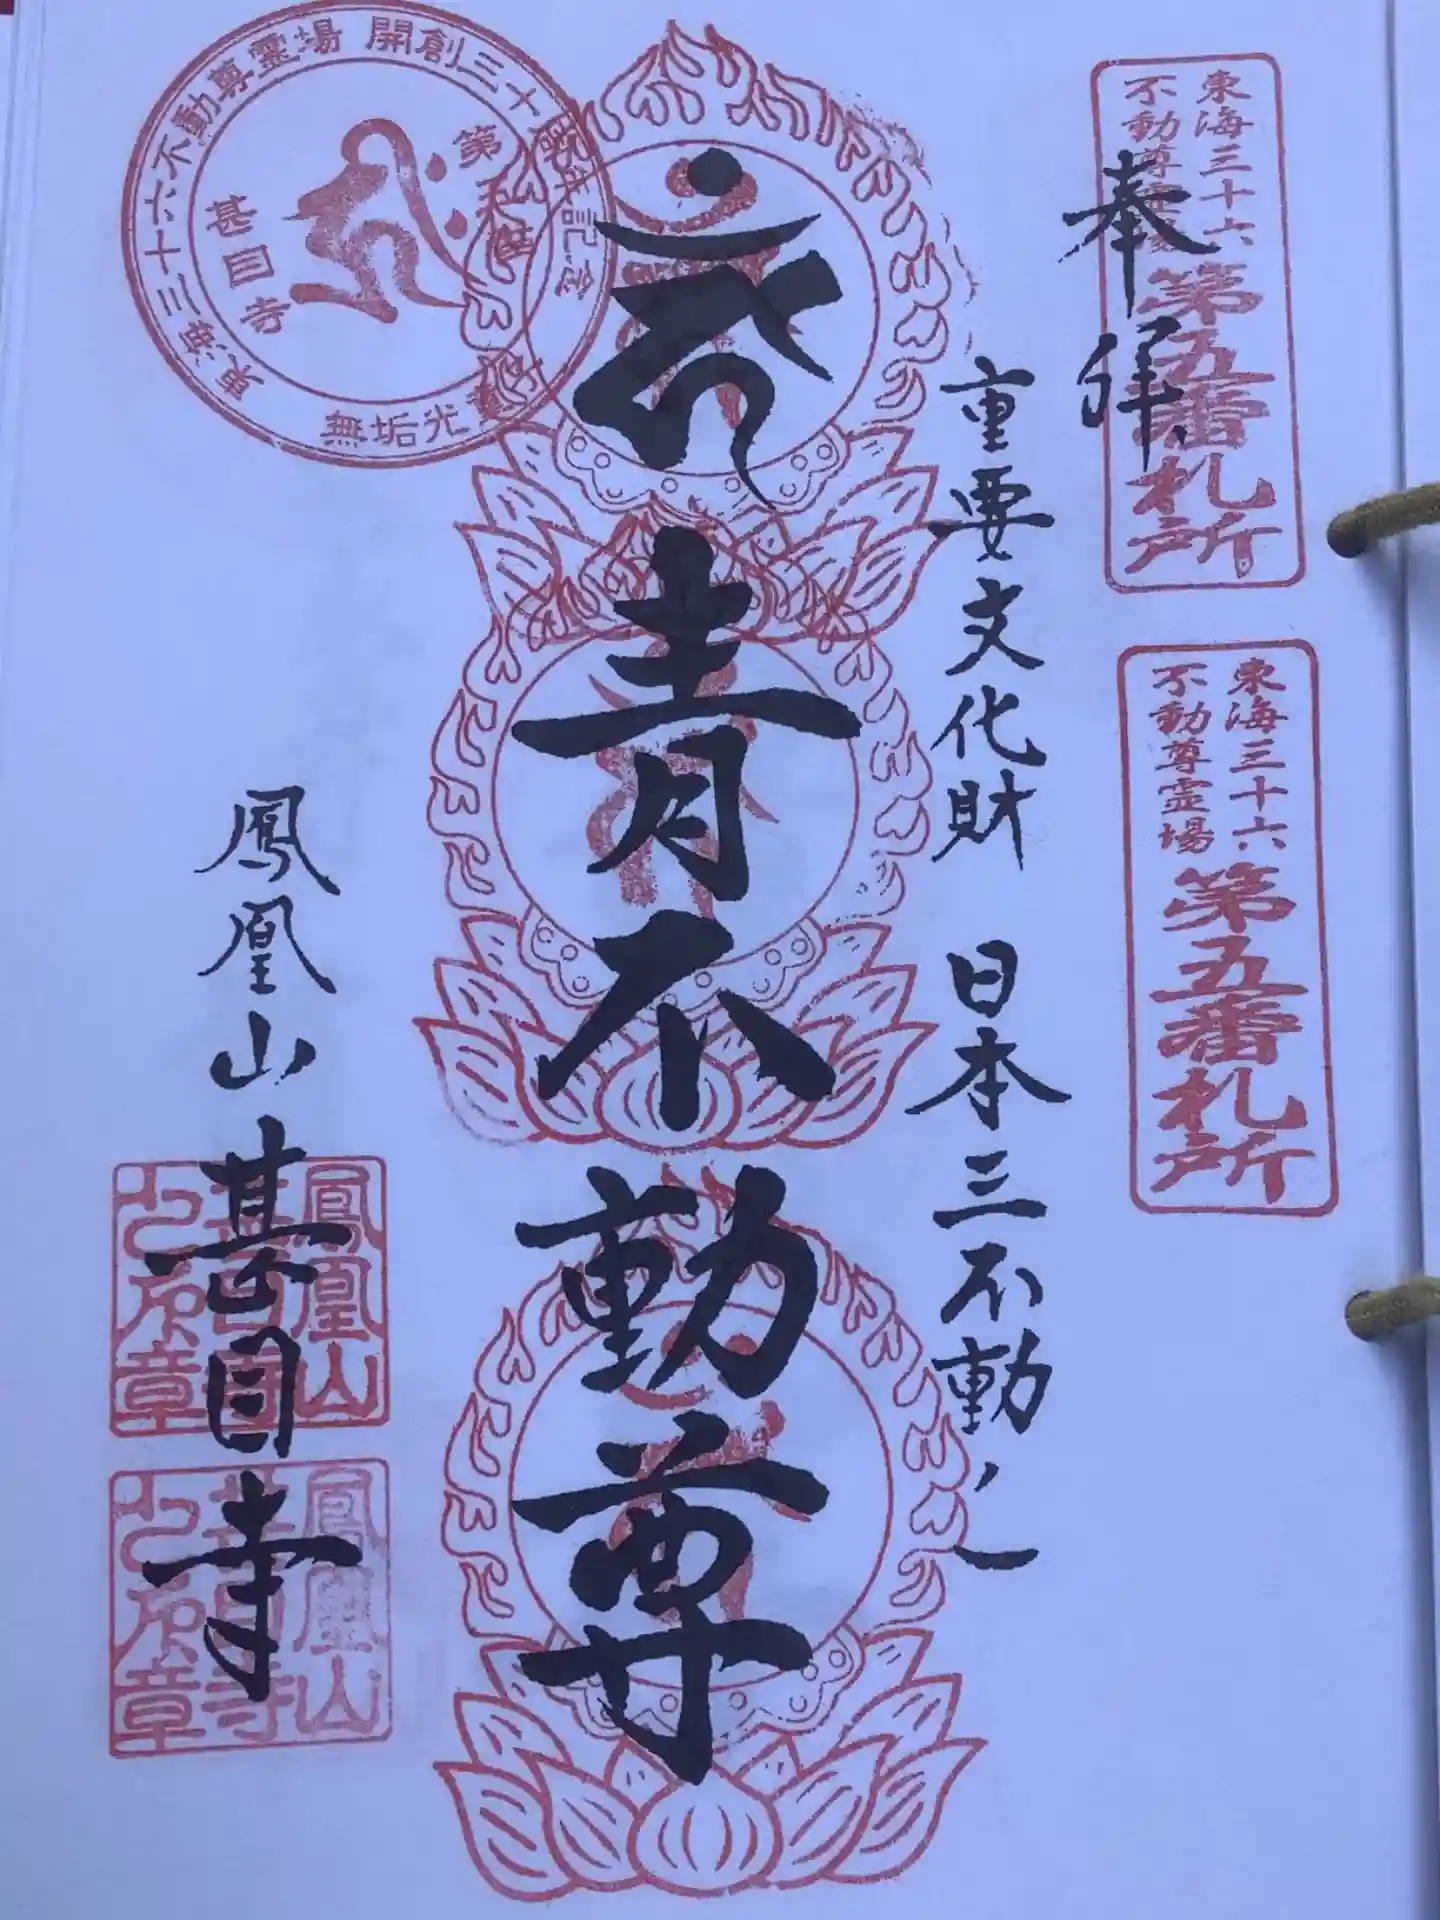 東海三十六
不動尊霊場
第五番札所
東海三十六
不動尊霊場
第五番札所
奉拝
重要文化財 日本三不動ノ一
青不動尊
東海三十六不動尊霊場 開創三十周年記念
第五番
甚目寺
無垢光童子
鳳凰山甚目寺
鳳凰山
甚目寺
鳳凰山
甚目寺